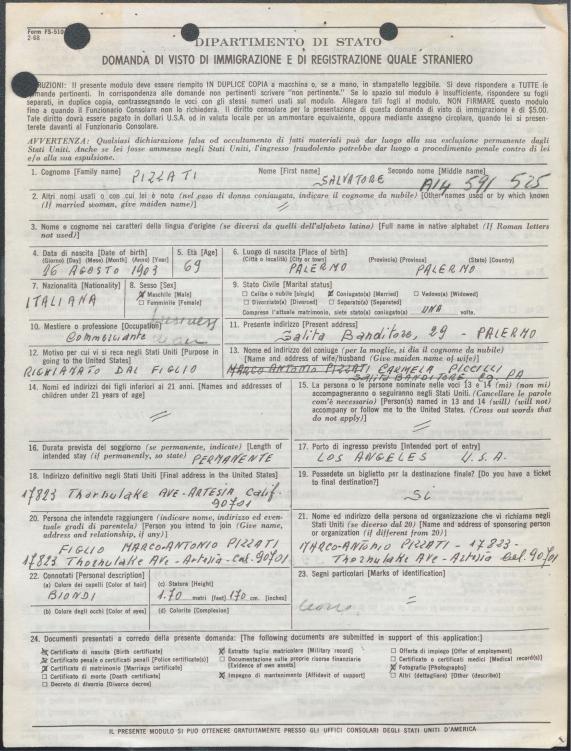 Form FS-510
2-68
DIPARTIMENTO DI STATO
DOMANDA DI VISTO DI IMMIGRAZIONE E DI REGISTRAZIONE QUALE STRANIERO
Il presente modulo deve essere riempito IN DUPLICE COPIA a macchina o, se a mano, in stampatello leggibile. Si deve rispondere a TUTTE le
domande pertinenti. In corrispondenza alle domande non pertinenti scrivere "non pertinente." Se lo spazio sul modulo è insufficiente, rispondere su fogli
separati, in duplice copia, contrassegnando le voci con gli stessi numeri usati sul modulo. Allegare tali fogli al modulo. NON FIRMARE questo modulo
fino a quando il Funzionario Consolare non lo richiederà. Il diritto consolare per la presentazione di questa domanda di visto di immigrazione è di $5.00.
Tale diritto dovrà essere pagato in dollari U.S.A. od in valuta locale per un ammontare equivalente, oppure mediante assegno circolare, quando lei si presen-
terete davanti al Funzionario Consolare.
AVVERTENZA: Qualsiasi dichiarazione falsa od occultamento di fatti materiali può dar luogo alla sua esclusione permanente dagli
Stati Uniti. Anche se lei fosse ammesso negli Stati Uniti, l'ingresso fraudolento potrebbe dar luogo a procedimento penale contro di lei
e/o alla sua espulsione.
1. Cognome [Family name] Nome [First name] Secondo nome [Middle name]
PIZZATI SALVATORE A14 591 525
2. Altri nomi usati o con cui lei è noto (nel caso di donna coniugata, indicare il cognome da nubile) [Other names used or by which known
(If married woman, give maiden name)] =
3. Nome e cognome nei caratteri della lingua d'origine (se diversi da quelli dell'alfabeto latino) [Full name in native alphabet (If Roman letters
not used)]
4. Data di nascita [Date of birth] 5. Età [Age] 6. Luogo di nascita [Place of birth]
(Giorno) [Day] (Mese) [Month] (Anno) [Year] (Città o località) [City or town] (Provincia) [Province] (Stato) [Country]
26 AGOSTO 1903 69 PALERMO PALERMO
7. Nazionalità [Nationality] 8. Sesso [Sex] 9. Stato Civile [Marital status]
ITALIANA ☒ Maschile [Male] ☐ Celibe o nubile [single] ☒ Coniugato(a) [Married] ☐ Vedovo(a) [Widowed]
☐ Femminile [Female] ☐ Divorziato(a) [Divorced] ☐ Separato(a) [Separated]
Compreso l'attuale matrimonio, siete stato(a) coniugato(a) UNA volte.
10. Mestiere o professione [Occupation] 11. Presente indirizzo [Present address]
business man
Commerciante Salita Banditore, 29 - PALERMO
12. Motivo per cui vi si reca negli Stati Uniti [Purpose in
going to the United States]
RICHIAMATO DAL FIGLIO
13. Nome ed indirizzo del coniuge (per la moglie, si dia il cognome da nubile)
[Name and address of wife/husband (Give maiden name of wife)]
MARCO ANTONIO PIZZATI CARMELA PICCILLI
SALITA BANDITORE 29 PA
14. Nomi ed indirizzi dei figli inferiori ai 21 anni. [Names and addresses of
children under 21 years of age]
=
15. La persona o le persone nominate nelle voci 13 e 14 (mi) (non mi)
accompagneranno o seguiranno negli Stati Uniti. (Cancellare le parole
com'è necessario) [Person(s) named in 13 and 14 (will) (will not)
accompany or follow me to the United States. (Cross out words that
do not apply)]
=
16. Durata prevista del soggiorno (se permanente, indicate) [Length of
intended stay (if permanently, so state)] PERMANENTE
17. Porto di ingresso previsto [Intended port of entry]
LOS ANGELES U.S.A.
18. Indirizzo definitivo negli Stati Uniti [Final address in the United States]
17823 Thornulake AVE - ARTESIA Calif.
90701
19. Possedete un biglietto per la destinazione finale? [Do you have a ticket
to final destination?]
Si
20. Persona che intendete raggiungere (indicare nome, indirizzo ed even-
tuale gradi di parentela) [Person you intend to join (Give name,
address and relationship, if any)]
FIGLIO MARCO-ANTONIO PIZZATI
17823 Thornulake Ave - Artesia - Cal. 90701
21. Nome ed indirizzo della persona od organizzazione che vi richiama negli
Stati Uniti (se diverso dal 20) [Name and address of sponsoring person
or organization (if different from 20)]
MARCO-ANTONIO PIZZATI - 17823 -
Thornulake Ave - Artesia Cal. 90701
22. Connotati [Personal description]
(a) Colore dei capelli [Color of hair] (c) Statura [Height]
BIONDI 1.70 metri [feet] 170 cm. [inches]
(b) Colore degli occhi [Color of eyes] (d) Colorito [Complexion]
23. Segni particolari [Marks of identification]
=
24. Documenti presentati a corredo della presente domanda: [The following documents are submitted in support of this application:]
☒ Certificato di nascita [Birth certificate] ☒ Estratto foglio matricolare [Military record] ☐ Offerta di impiego [Offer of employment]
☒ Certificato penale o certificati penali [Police certificate(s)] ☐ Documentazione sulle proprie risorse finanziarie ☐ Certificato o certificati medici [Medical record(s)]
☒ Certificato di matrimonio [Marriage certificate] [Evidence of own assets] ☒ Fotografie [Photographs]
☐ Certificato di morte [Death certificate] ☒ Impegno di mantenimento [Affidavit of support] ☐ Altri (dettagliare) [Other (describe)]
☐ Decreto di divorzio [Divorce decree]
IL PRESENTE MODULO SI PUÒ OTTENERE GRATUITAMENTE PRESSO GLI UFFICI CONSOLARI DEGLI STATI UNITI D'AMERICA